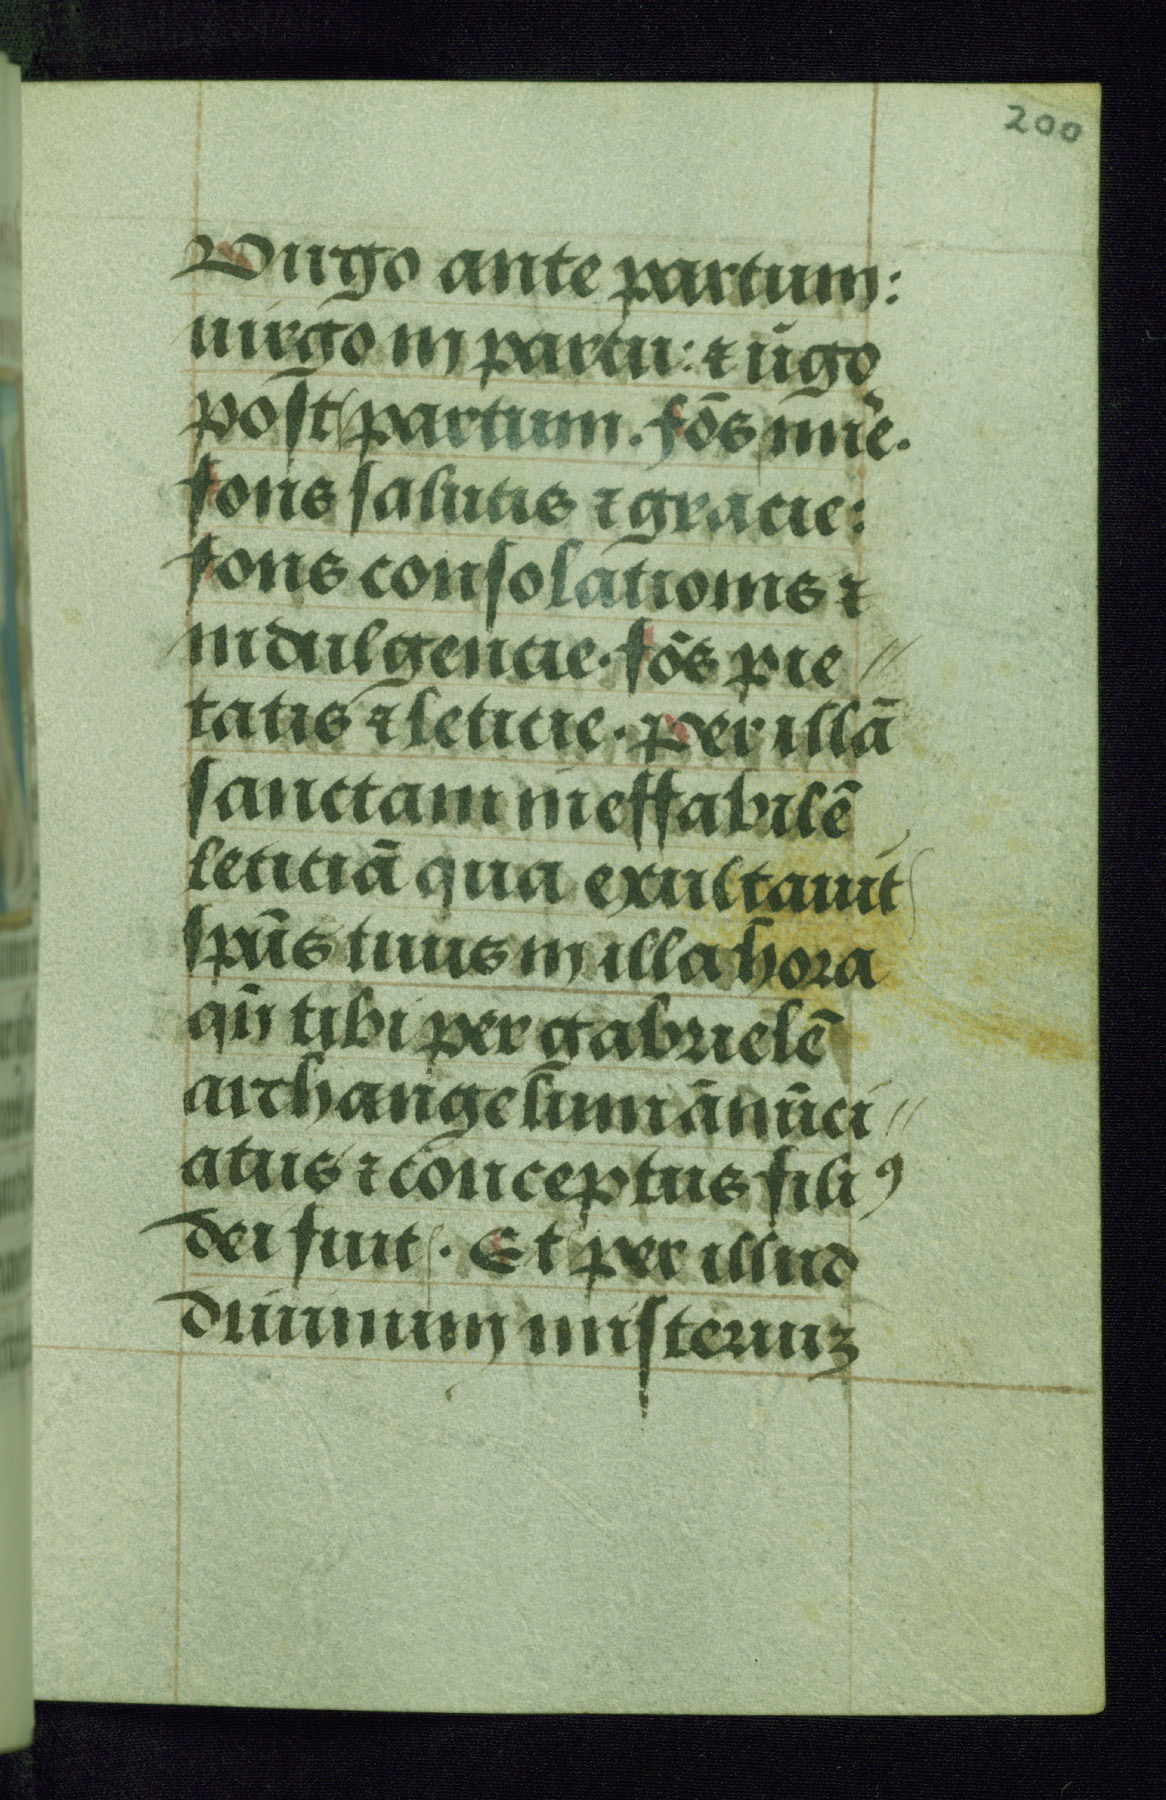 200
Virgo ante partum:
uirgo in partu: ⁊ ūgo
post partum. fōs mīe.
fons salutis ⁊ gracie:
fons consolationis ⁊
indulgencie. fōs pie
tatis ⁊ leticie. per illā
sanctam ineffabilē
leticiā qua exultauit
spūs tuus in illa hora
qn̄ tibi per gabrielē
archangelum ānūci
atus ⁊ conceptus filiꝯ
dei fuit. Et per illud
diuinum misteriuz